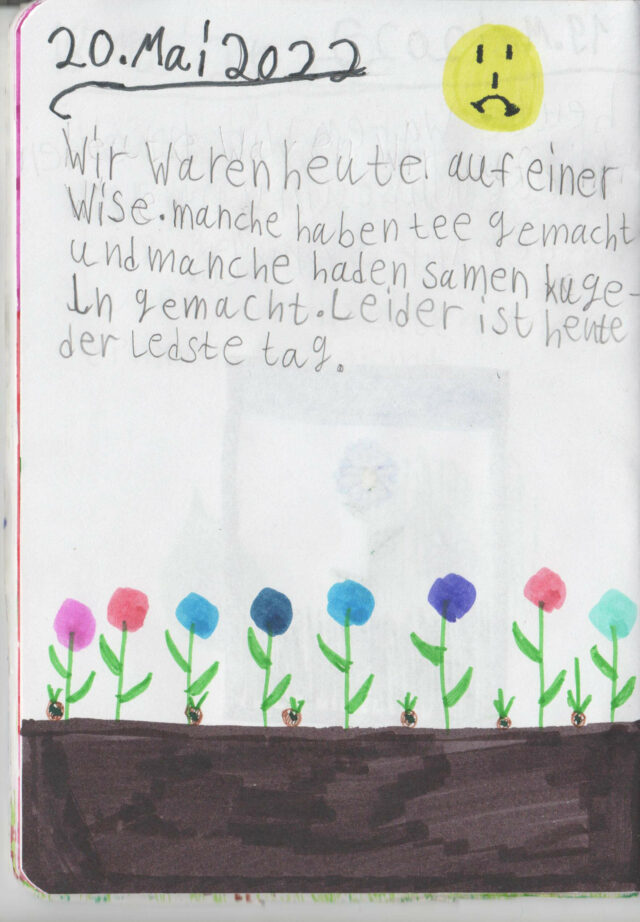 20. Mai 2022
Wir waren heute auf einer
Wise. manche haben tee gemacht
und manche haden samen kuge-
ln gemacht. Leider ist heute
der Ledste tag.